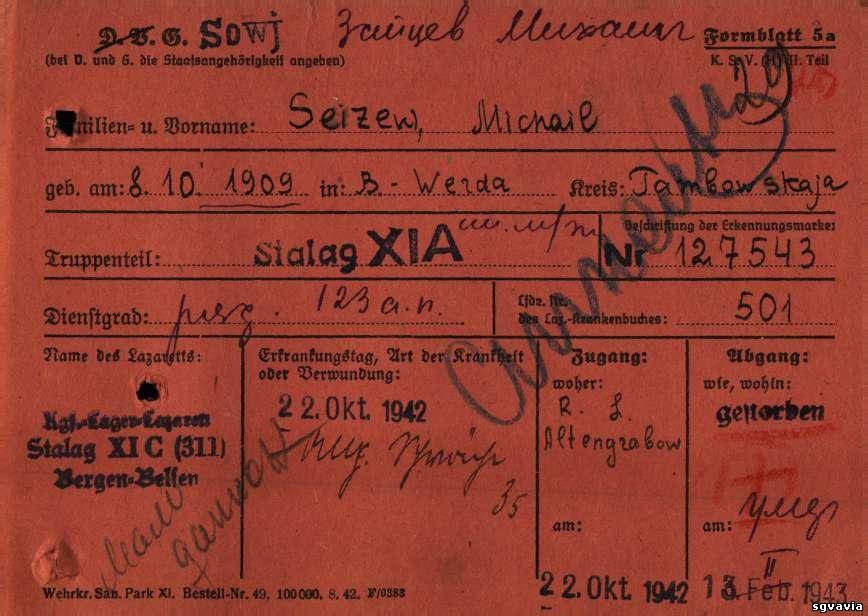 D. V. G. Sowj Зайцев Михаил Formblatt 5a
(bei V. und G. die Staatsangehörigkeit angeben) K. S. V. II. Teil
29
Familien- u. Vorname: Seizew, Michail
geb. am: 8. 10. 1909 in: B - Werda Kreis: Tambowskaja
Beschriftung der Erkennungsmarke:
Truppenteil: Stalag XIA Nr 127543
Dienstgrad: 123 а.п. Lfde. Nr. des Laz.-Krankenbuches: 501
Name des Lazaretts:
Kgf.-Lager-Lazarett
Stalag XI C (311)
Bergen-Belsen
Erkrankungstag, Art der Krankheit
oder Verwundung:
22. Okt. 1942
Allg. Schwäche
35
Zugang:
woher:
R. L.
Altengrabow
am:
22. Okt. 1942
Abgang:
wie, wohin:
gestorben
am:
II
13. Feb. 1943
Wehrkr. San. Park XI. Bestell-Nr. 49, 100000. 8. 42. F/0383
sgvavia